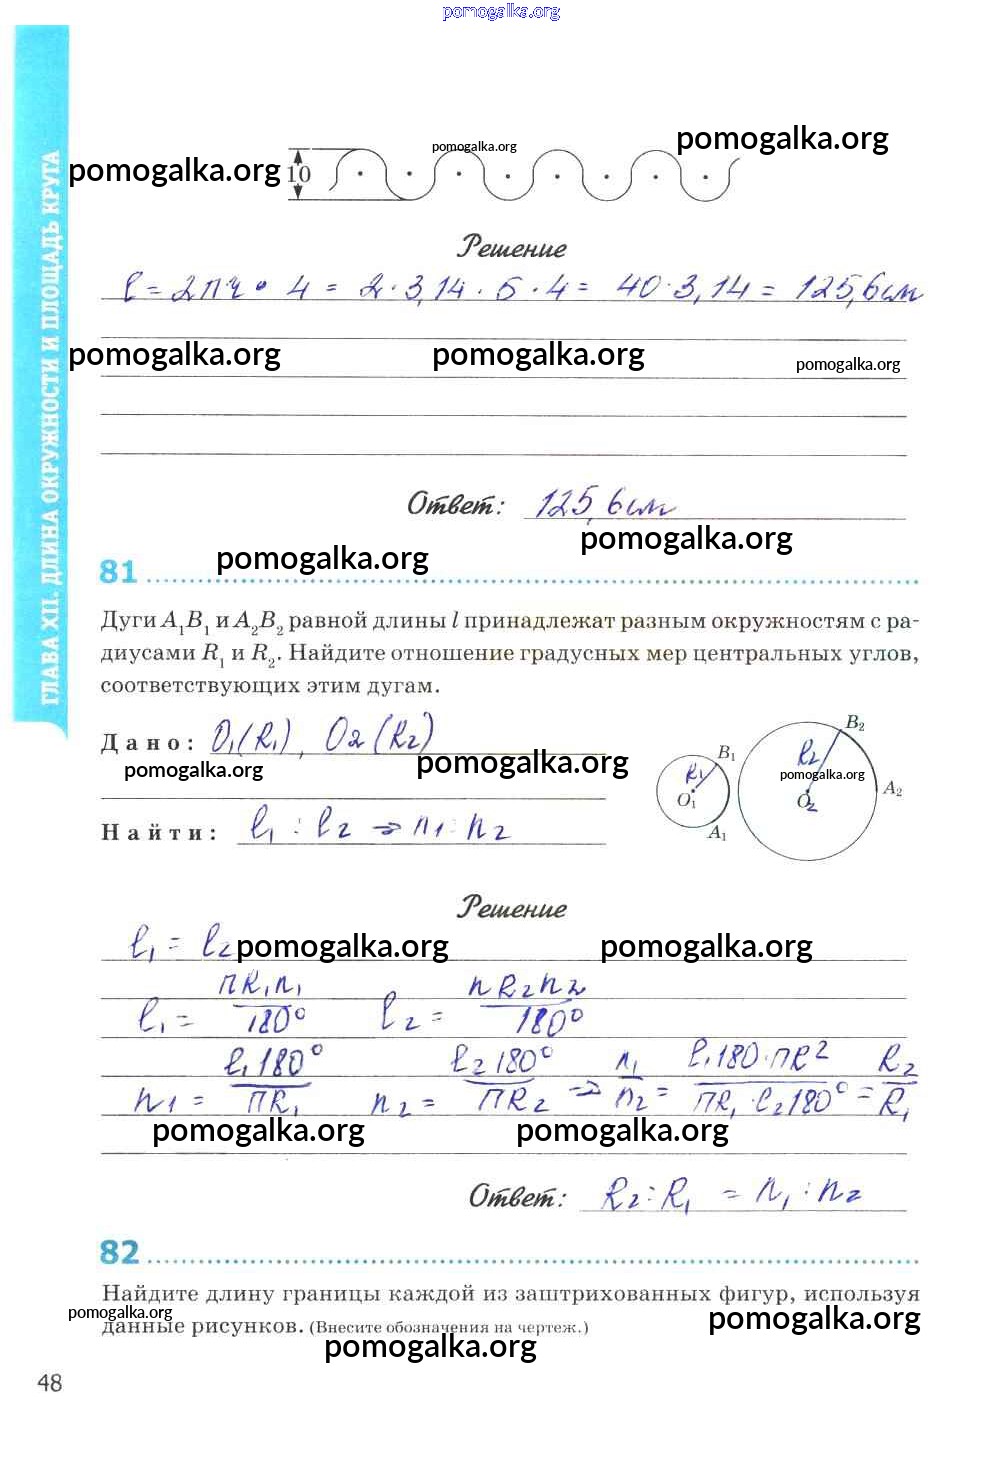 pomogalka.org
pomogalka.org
pomogalka.org
pomogalka.org
10
Решение
l = 2πr · 4 = 2 · 3,14 · 5 · 4 = 40 · 3,14 = 125,6 см
pomogalka.org pomogalka.org pomogalka.org
Ответ: 125,6 см
pomogalka.org
pomogalka.org
81
Дуги A₁B₁ и A₂B₂ равной длины l принадлежат разным окружностям с ра-
диусами R₁ и R₂. Найдите отношение градусных мер центральных углов,
соответствующих этим дугам.
Дано: O₁(R₁), O₂(R₂)
pomogalka.org pomogalka.org pomogalka.org
Найти: l₁ : l₂ ⇒ n₁ : n₂
B₁
R₁
O₁
A₁
B₂
R₂
O₂
A₂
Решение
l₁ = l₂
pomogalka.org pomogalka.org
l₁ = πR₁n₁/180° l₂ = πR₂n₂/180°
n₁ = l₁180°/πR₁ n₂ = l₂180°/πR₂ ⇒ n₁/n₂ = l₁180·πR²/πR₁·l₂180° = R₂/R₁
pomogalka.org pomogalka.org
Ответ: R₂ : R₁ = n₁ : n₂
82
Найдите длину границы каждой из заштрихованных фигур, используя
данные рисунков. (Внесите обозначения на чертеж.)
pomogalka.org pomogalka.org pomogalka.org
48
ГЛАВА XII. ДЛИНА ОКРУЖНОСТИ И ПЛОЩАДЬ КРУГА